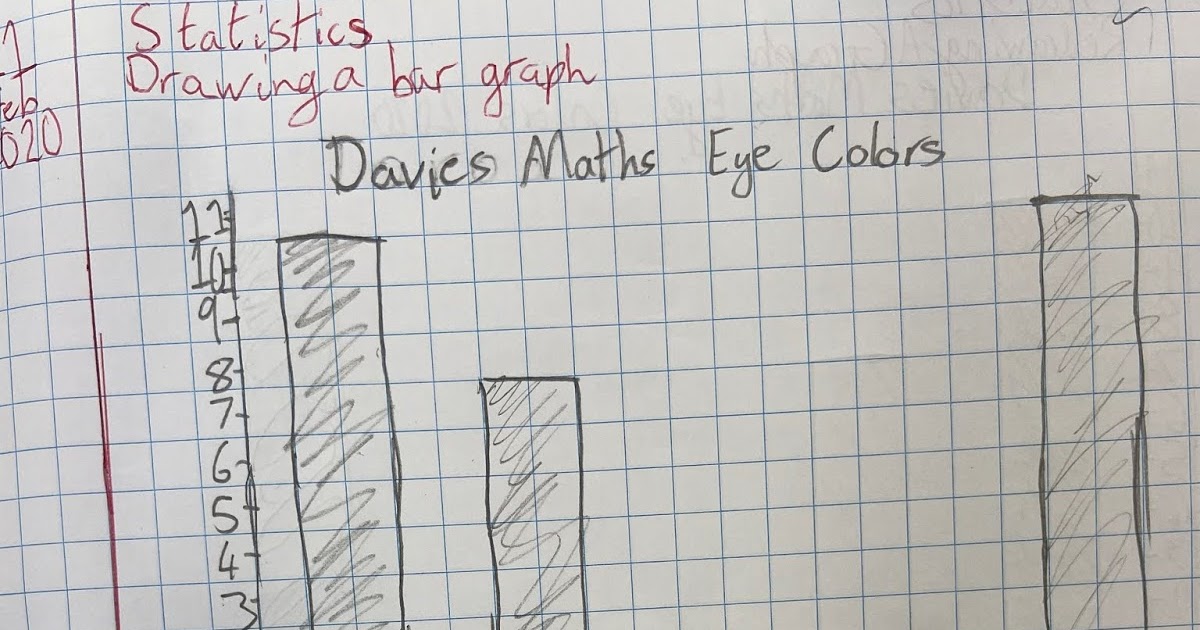 1 Statistics
eb Drawing a bar graph
020
Davies Maths Eye Colors
11
10
9
8
7
6
5
4
3